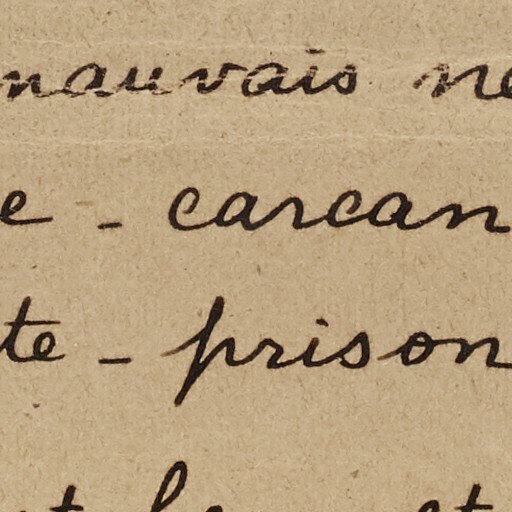 mauvais ne
e - carcan
te - prison